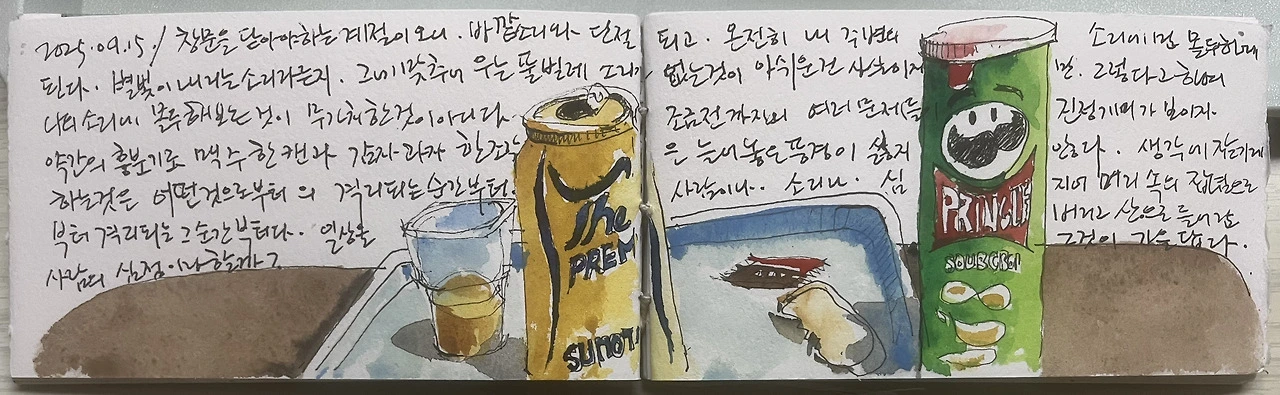 2025.09.15./ 창문을 닫아야하는 계절이 오니. 바깥소리와 단절
된다. 별빛이 내리는 소리라든지. 그에 맞추어 우는 풀벌레 소리가
나의 소리에 몰두해보는 것이 무가치한것이 아니다.
약간의 흥분기로 맥주 한캔과 감자과자 한조각
하는것은 어떤것으로부터의 격리되는 순간부터.
부터 격리되는 그 순간부터다. 일상을
사람의 심정이랄할까?
되고. 온전히 내 주변의 소리에만 몰두할때
없는것이 아쉬운건 사실이지만. 그렇다고 하여
조금전까지의 여러 문제들 진전기미가 보이지.
은 늘어놓은 풍경이 싫지 않다. 생각에 잠기게
사람이나.. 소리나. 심지어 머리 속의 잡념으로
버리고 산으로 들어간
그것이 가을 답다.
The
PREM
SUNTO
PRINGLE
SOUR CREAM